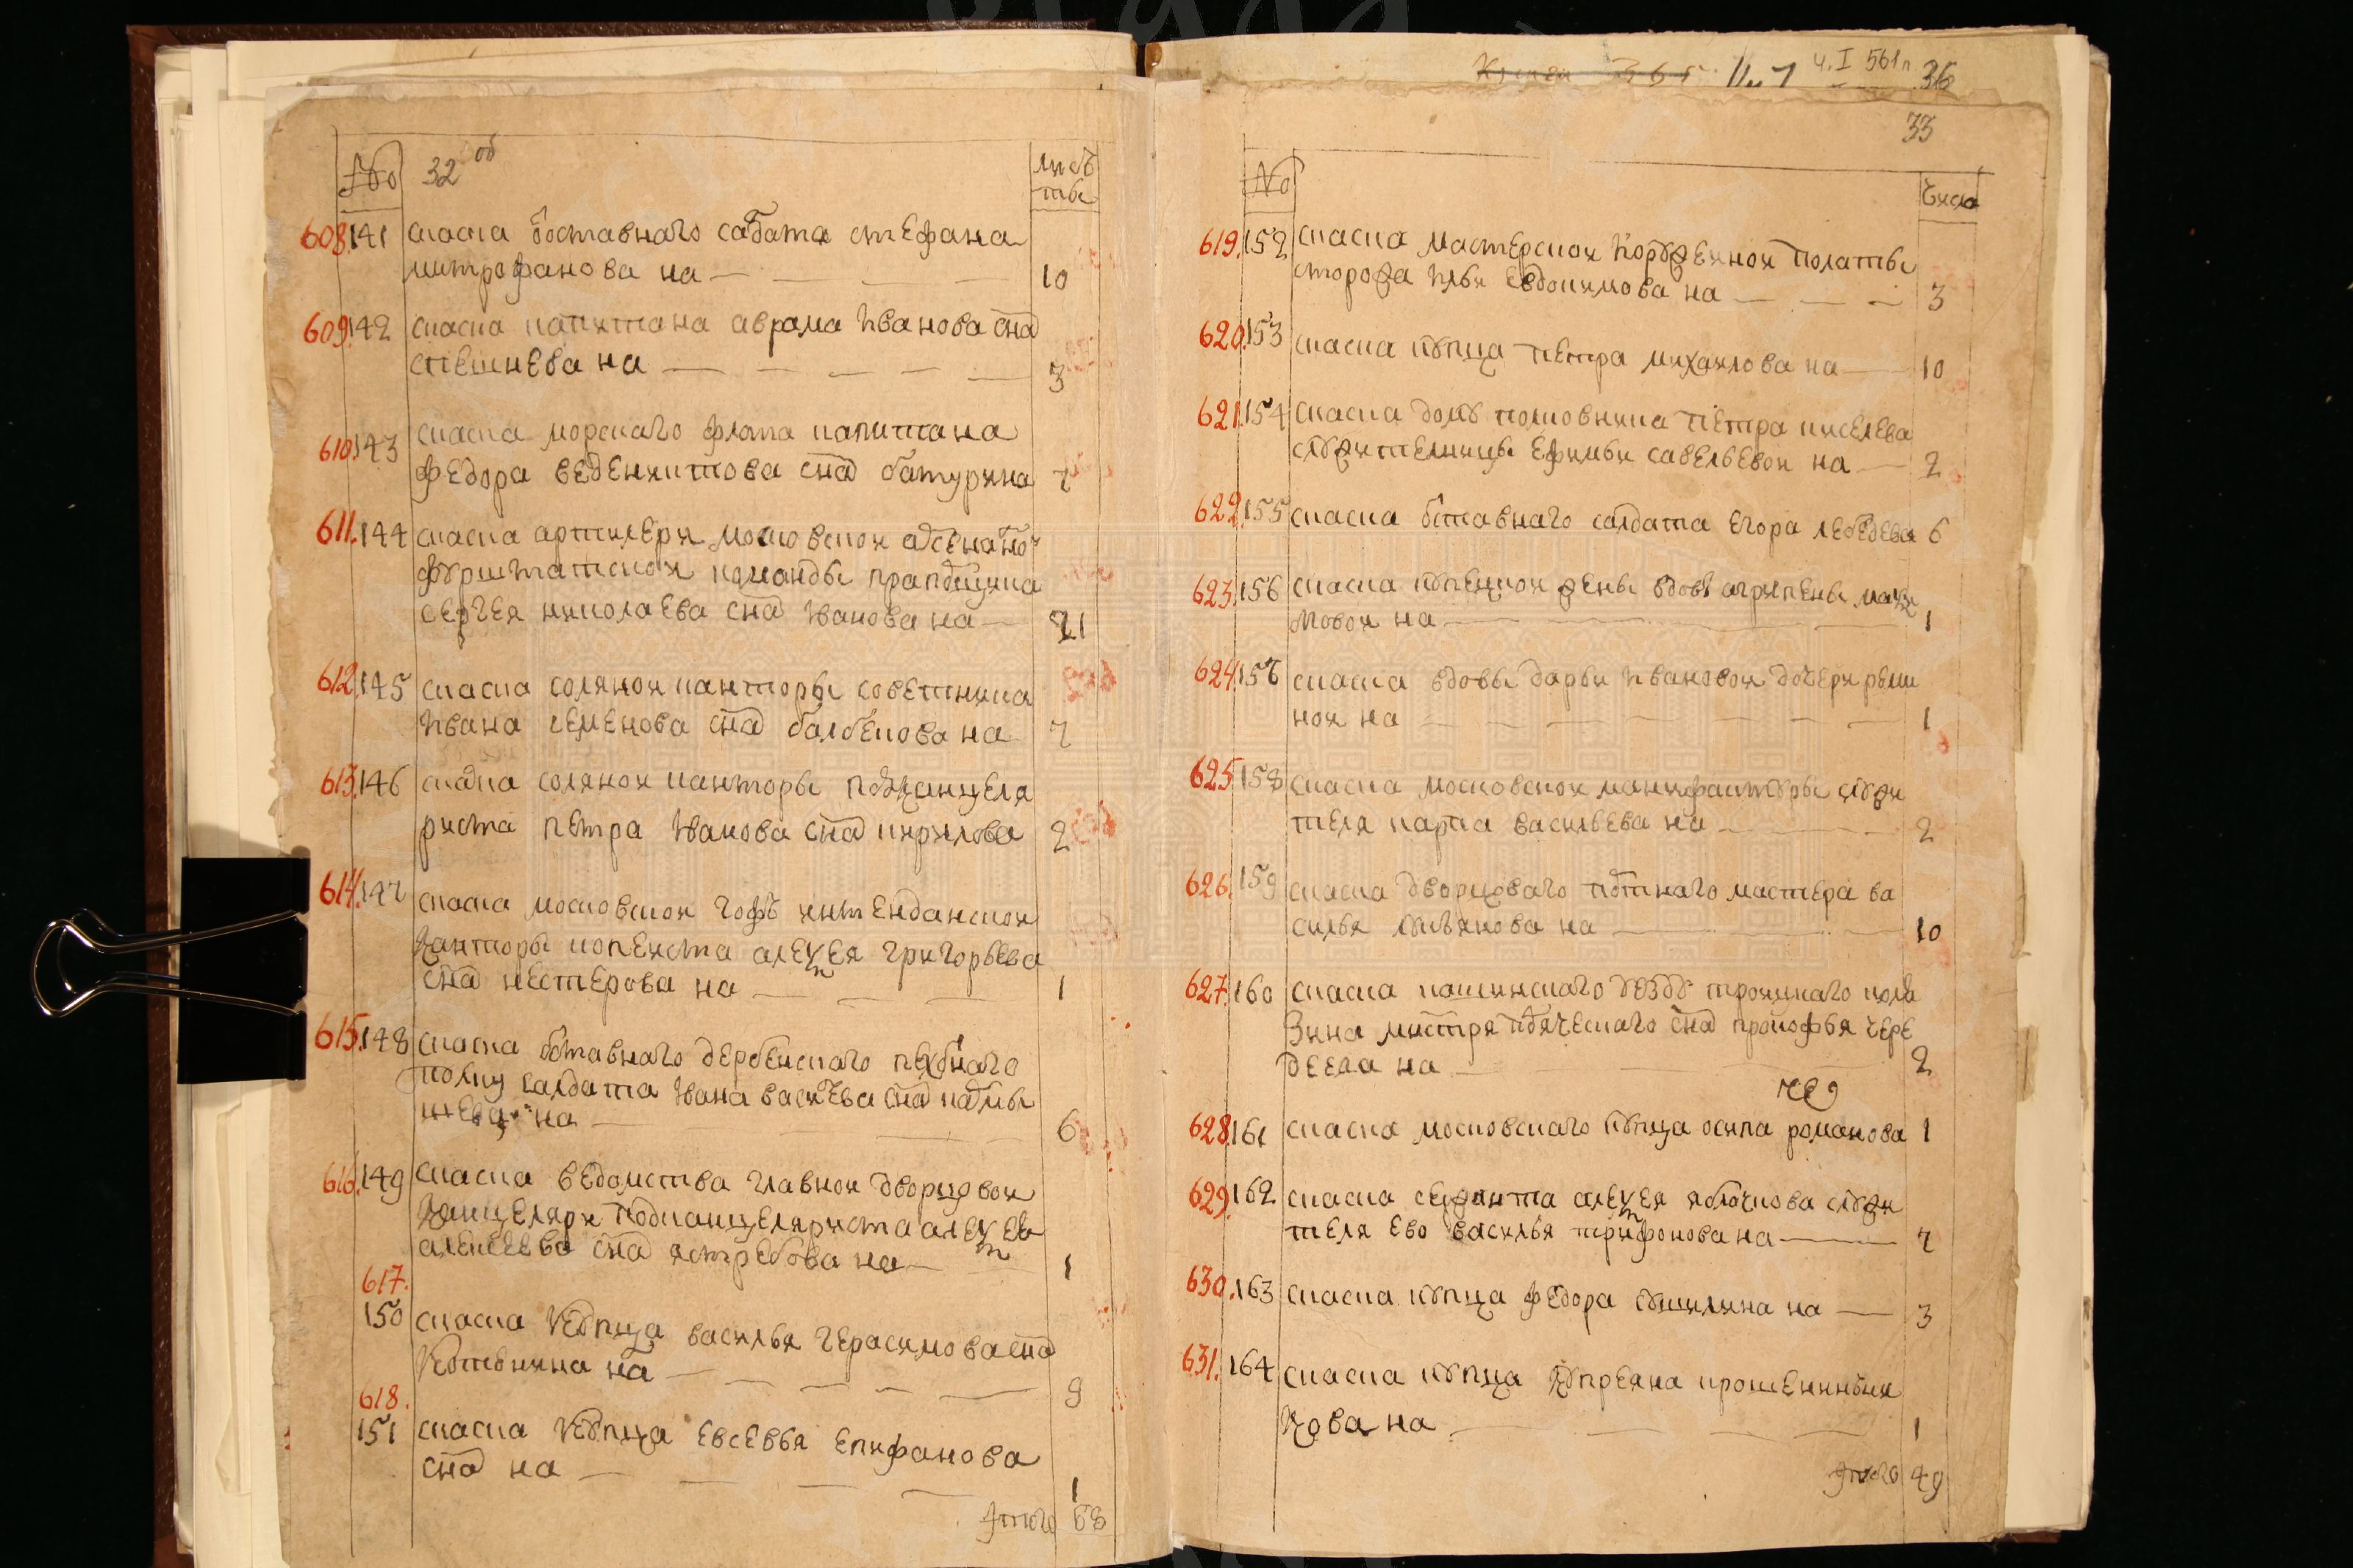 № 32 об листы
608. 141 скаска отставнаго салдата стефана
митрофанова на 10
609. 142 скаска капитана аврама иванова сна
стешнева на 3
610. 143 скаска морскаго флота капитана
федора веденихтова сна батурина 7
611. 144 скаска артилери московской
фурштатской команды прапорщика
сергея николаева сна иванова на 21
612. 145 скаска соляной канторы советника
ивана семенова сна на 7
613. 146 скаска соляной канторы подканцеля
риста петра иванова сна кирилова 2
614. 147 скаска московской гофъ интенданской
канторы копеиста алексея григорьева
сна нестерова на 1
615. 148 скаска отставнаго дербенскаго пехотнаго
полку салдата ивана васильева сна
на 6
616. 149 скаска ведомства главной дворцовой
канцеляри подканцеляриста алексея
алексеева сна ястребова на 1
617.
150 скаска купца василья герасимова сна
на 9
618.
151 скаска купца евсевья епифанова
сна на 1
итого 68
ч. I 561л 36
33
№ число
619. 152 скаска мастерской и оружейной полаты
сторожа ильи евдокимова на 3
620. 153 скаска купца петра михайлова на 10
621. 154 скаска дому полковника петра киселева
служительницы ефимьи савельевой на 2
622. 155 скаска отставнаго салдата егора лебедева 6
623. 156 скаска купецкой жены вдовы агрипены макси
мовой на 1
624. 157 скаска вдовы дарьи ивановой дочери
ной на 1
625. 158 скаска московской манифактуры служи
теля карпа васильева на 2
626. 159 скаска дворцоваго мастера ва
силья на 10
627. 160 скаска кашинскаго уезду троицкаго
зина сна прокофья чере
деева на 2
628. 161 скаска московскаго купца осипа романова 1
629. 162 скаска сержанта алексея яблочкова служи
теля ево василья трифонова на 7
630. 163 скаска купца федора на 3
631. 164 скаска купца купреяна
кова на 1
итого 49